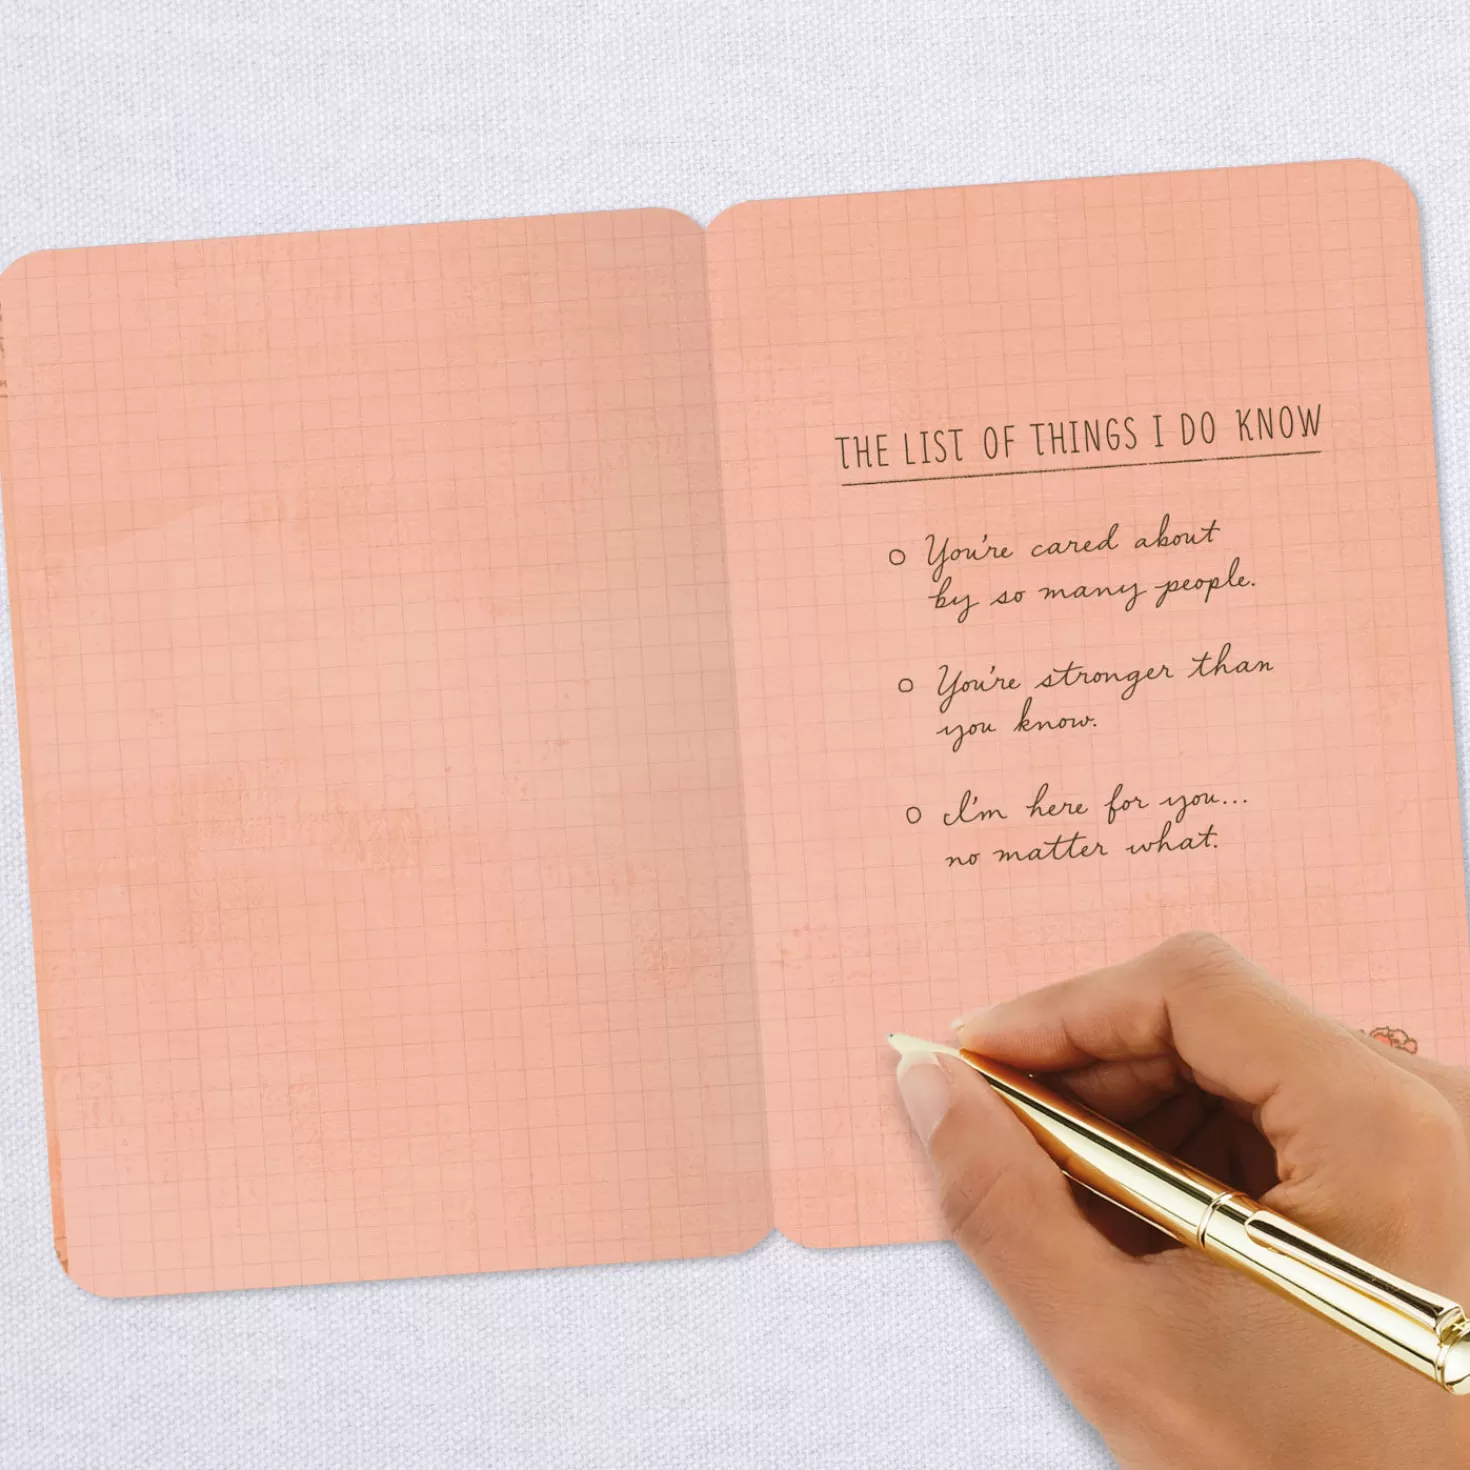 THE LIST OF THINGS I DO KNOW
You're cared about
by so many people.
You're stronger than
you know.
I'm here for you...
no matter what.